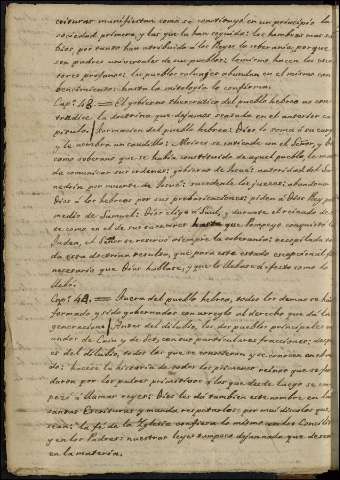 crituras manifiestan como se constituyó en un principio la
sociedad primera, y las que la han seguido: los hombres mas sa-
bios por cuanto han atribuido á los Reyes la soberania, porque
son padres universales de sus pueblos: lo mismo hacen los
tores profanos: los pueblos abundan en el mismo con-
bencimiento: hasta la mitologia lo confirma.
Cap.º 43. = El gobierno theocratico del pueblo hebreo no con-
tradice la doctrina que dejamos sentada en el anterior ca-
pitulo. Formacion del pueblo hebreo: Dios lo toma á su cargo
y le nombra un caudillo: Moises se entiende con el Señor, y
como soberano que se habia constituido de aquel pueblo, le
da comunicar sus ordenes: gobierno de Josué: autoridad del Sa-
nedrin por muerte de Josué: sucedenle los jueces: abandona
Dios á los hebreos por sus prebaricaciones: piden á Dios Rey por
medio de Samuel: Dios elije á Saul, y durante el reinado de
se como en el de sus sucesores hasta que Pompeyo conquistó la
Judea, el Señor se reservó siempre la soberania: recopilada to-
da esta doctrina resulta, que para este estado escepcional fue
necesario que Dios hablase, y que lo dedujese como lo
Cap.º 44. = Fuera del pueblo hebreo, todos los demas se han
formado y sido gobernados con arreglo al derecho que dá la
generacion. Antes del diluvio, los dos pueblos principales
undos de Cain y de Set, con sus particulares fracciones; despu-
es del diluvio, todos los que se conocieron y se conocen en el
do: hacese la historia de todos los primeros reinos que se fun-
daron por los padres primitivos á los que desde luego se em-
pezó á llamar reyes: Dios les dá tambien este nombre en las
santas Escrituras y manda respetarlos: por mui discolos que
sean: la fé de la Yglesia confiesa lo mismo en los Concilios
y en los Padres: nuestras leyes tampoco dejan nada que desear
en la materia.